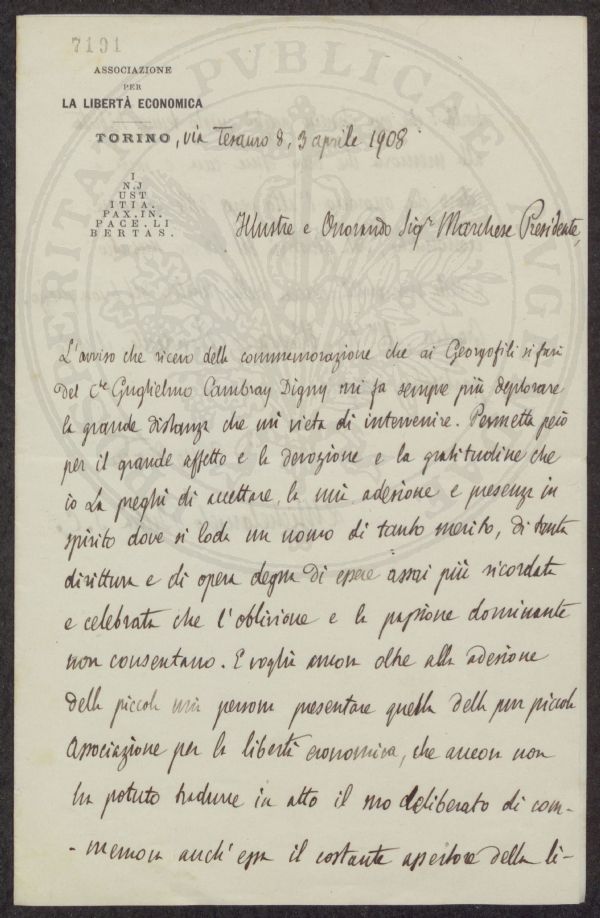 7191
ASSOCIAZIONE
PER
LA LIBERTÀ ECONOMICA
TORINO, via Tesauro 8, 3 aprile 1908
I
N.J
UST
ITIA.
PAX.IN.
PACE.LI
BERTAS.
Illustre e Onorando Sigr Marchese Presidente,
L'avviso che ricevo della commemorazione che ai Georgofili si farà
del Cte Guglielmo Cambray Digny mi fa sempre più deplorare
la grande distanza che mi vieta di intervenire. Permetta però
per il grande affetto e la devozione e la gratitudine che
io La preghi di accettare, la mia adesione e presenza in
spirito dove si loda un uomo di tanto merito, di tanta
dirittura e di opera degna di essere assai più ricordata
e celebrata che l'oblivione e la passione dominante
non consentano. E voglia ancora oltre alla adesione
della piccola mia persona presentare quella della pur piccola
Associazione per la libertà economica, che ancora non
ha potuto tradurre in atto il suo deliberato di com-
-memorar anch'essa il costante assertore della li-